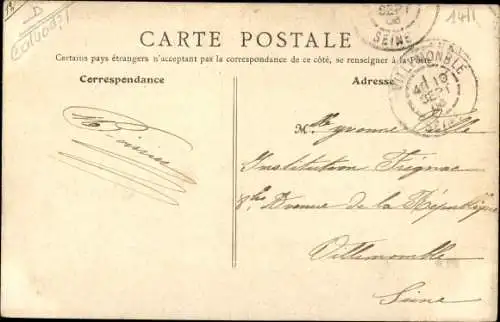 1411
SEPT
08
SEINE
CARTE POSTALE
Certains pays étrangers n'acceptant pas la correspondance de ce côté, se renseigner à la Poste
Correspondance
Adresse
VILLEMOMBLE
SEPT
08
M lle Yvonne
Institution Frignac
Avenue de la République
Villemomble
Seine